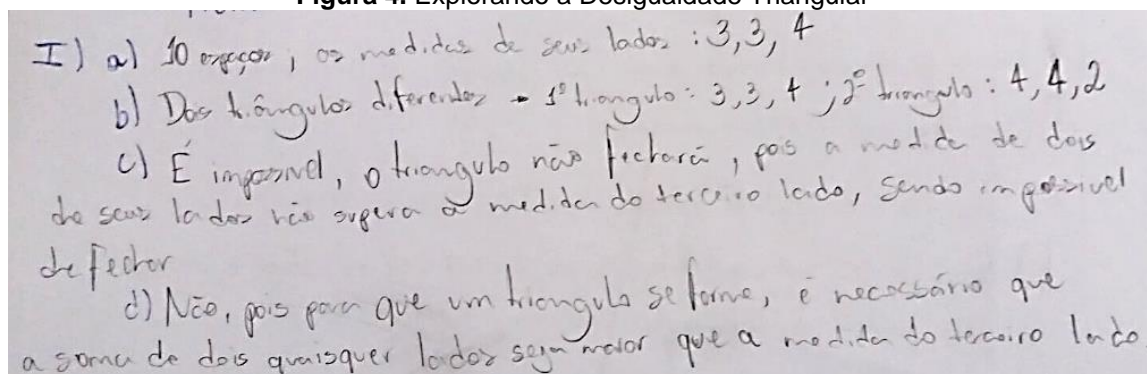 Figura 4. Explorando a Desigualdade Triangular
I) a) 10 espaços, as medidas de seus lados : 3, 3, 4
b) Dois triângulos diferentes → 1º triangulo: 3, 3, 4 ; 2º triangulo: 4, 4, 2
c) É impossível, o triangulo não fechará, pois a medida de dois
de seus lados não supera a medida do terceiro lado, sendo impossível
de fechar
d) Não, pois para que um triangulo se forme, é necessário que
a soma de dois quaisquer lados seja maior que a medida do terceiro lado